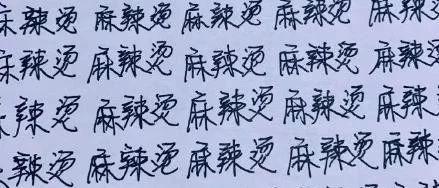 麻辣烫 麻辣烫 麻辣烫 麻辣烫 麻辣
麻辣烫 麻辣烫 麻辣烫 麻辣烫 麻辣烫
辣烫 麻辣烫 麻辣烫 麻辣烫 麻辣
辣烫 麻辣烫 麻辣烫 麻辣烫 麻辣